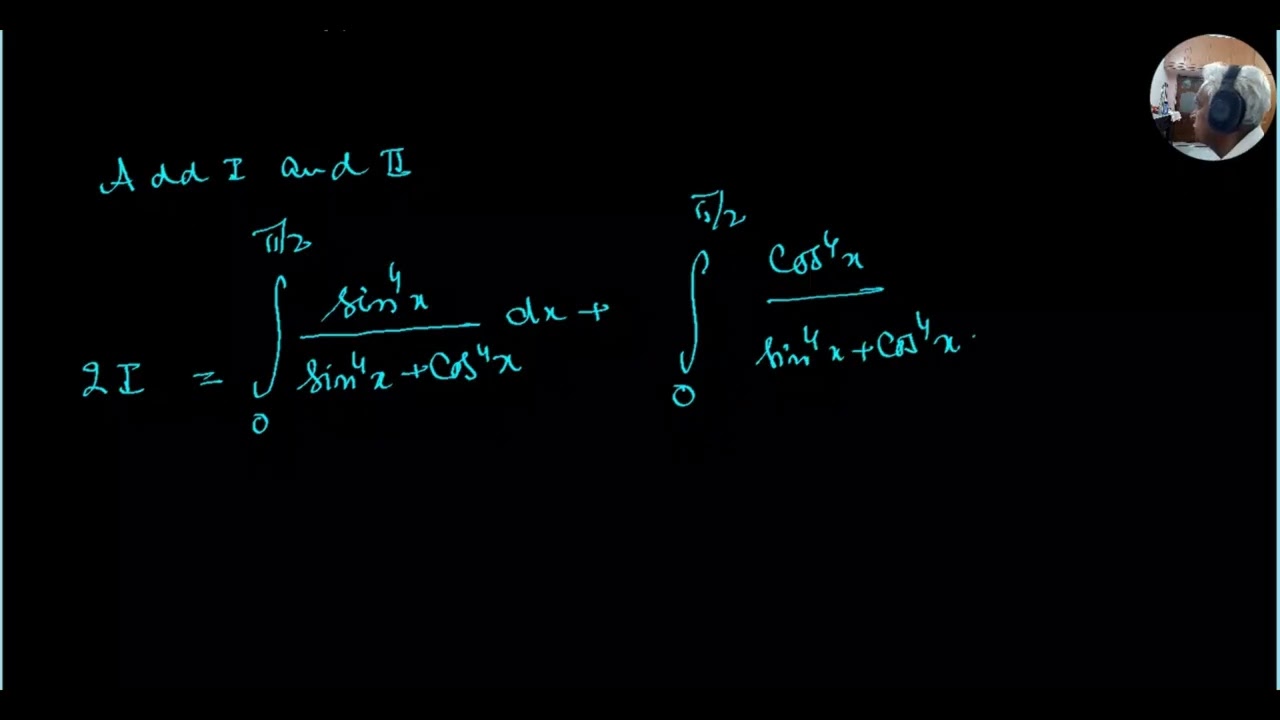 Add I and II
2I = ∫₀^{π/2} sin⁴x / (sin⁴x + Cos⁴x) dx + ∫₀^{π/2} Cos⁴x / (sin⁴x + Cos⁴x) .